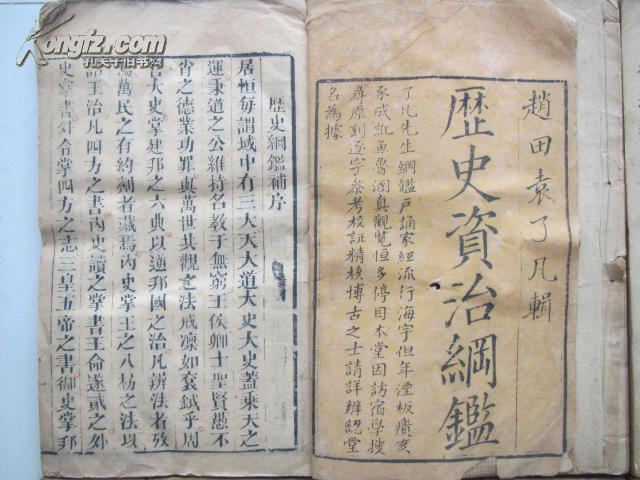 趙田袁了凡輯
歷史資治綱鑑
了凡先生綱鑑戶誦家經流行海宇但年湮板瘝亥
豕成訛魚魯溷真觀覽恒多停目本堂因訪宿學搜
尋原刻逐字叅考校証精核博古之士請詳辨認堂
名為據
歷史綱鑑補序
居恒每謂域中有三大天大道大史大史蓋乘天之
運秉道之公維持名教于無窮王侯卿士聖賢愚不
肖之德業功罪與萬世共觀之法戒凜如袞鉞乎周
官大史掌建邦之六典以逆邦國之治凡辨法者攷
焉萬民之有約劑者藏焉內史掌王之八枋之法以
詔王治凡四方之書內史讀之掌書王命遂貳之外
史掌書外令掌四方之志三皇五帝之書御史掌邦
Kongfz.com
孔夫子旧书网